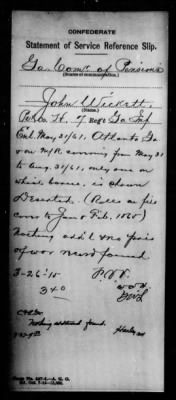 CONFEDERATE
Statement of Service Reference Slip.
Ga. Com'r of Pensions
(Source of communication.)
John
(Name.)
Co. H. 7 Reg't Ga. Inf
Enl. May 31/61, Atlanta Ga
on M/R covering from May 31
to Aug. 31/61, only one on
which borne, is shown
Deserted. (Rolls on file
cover to Jan & Feb. 1865)
Nothing add'l
of war record found
3-26-15
340
Nothing additional found.